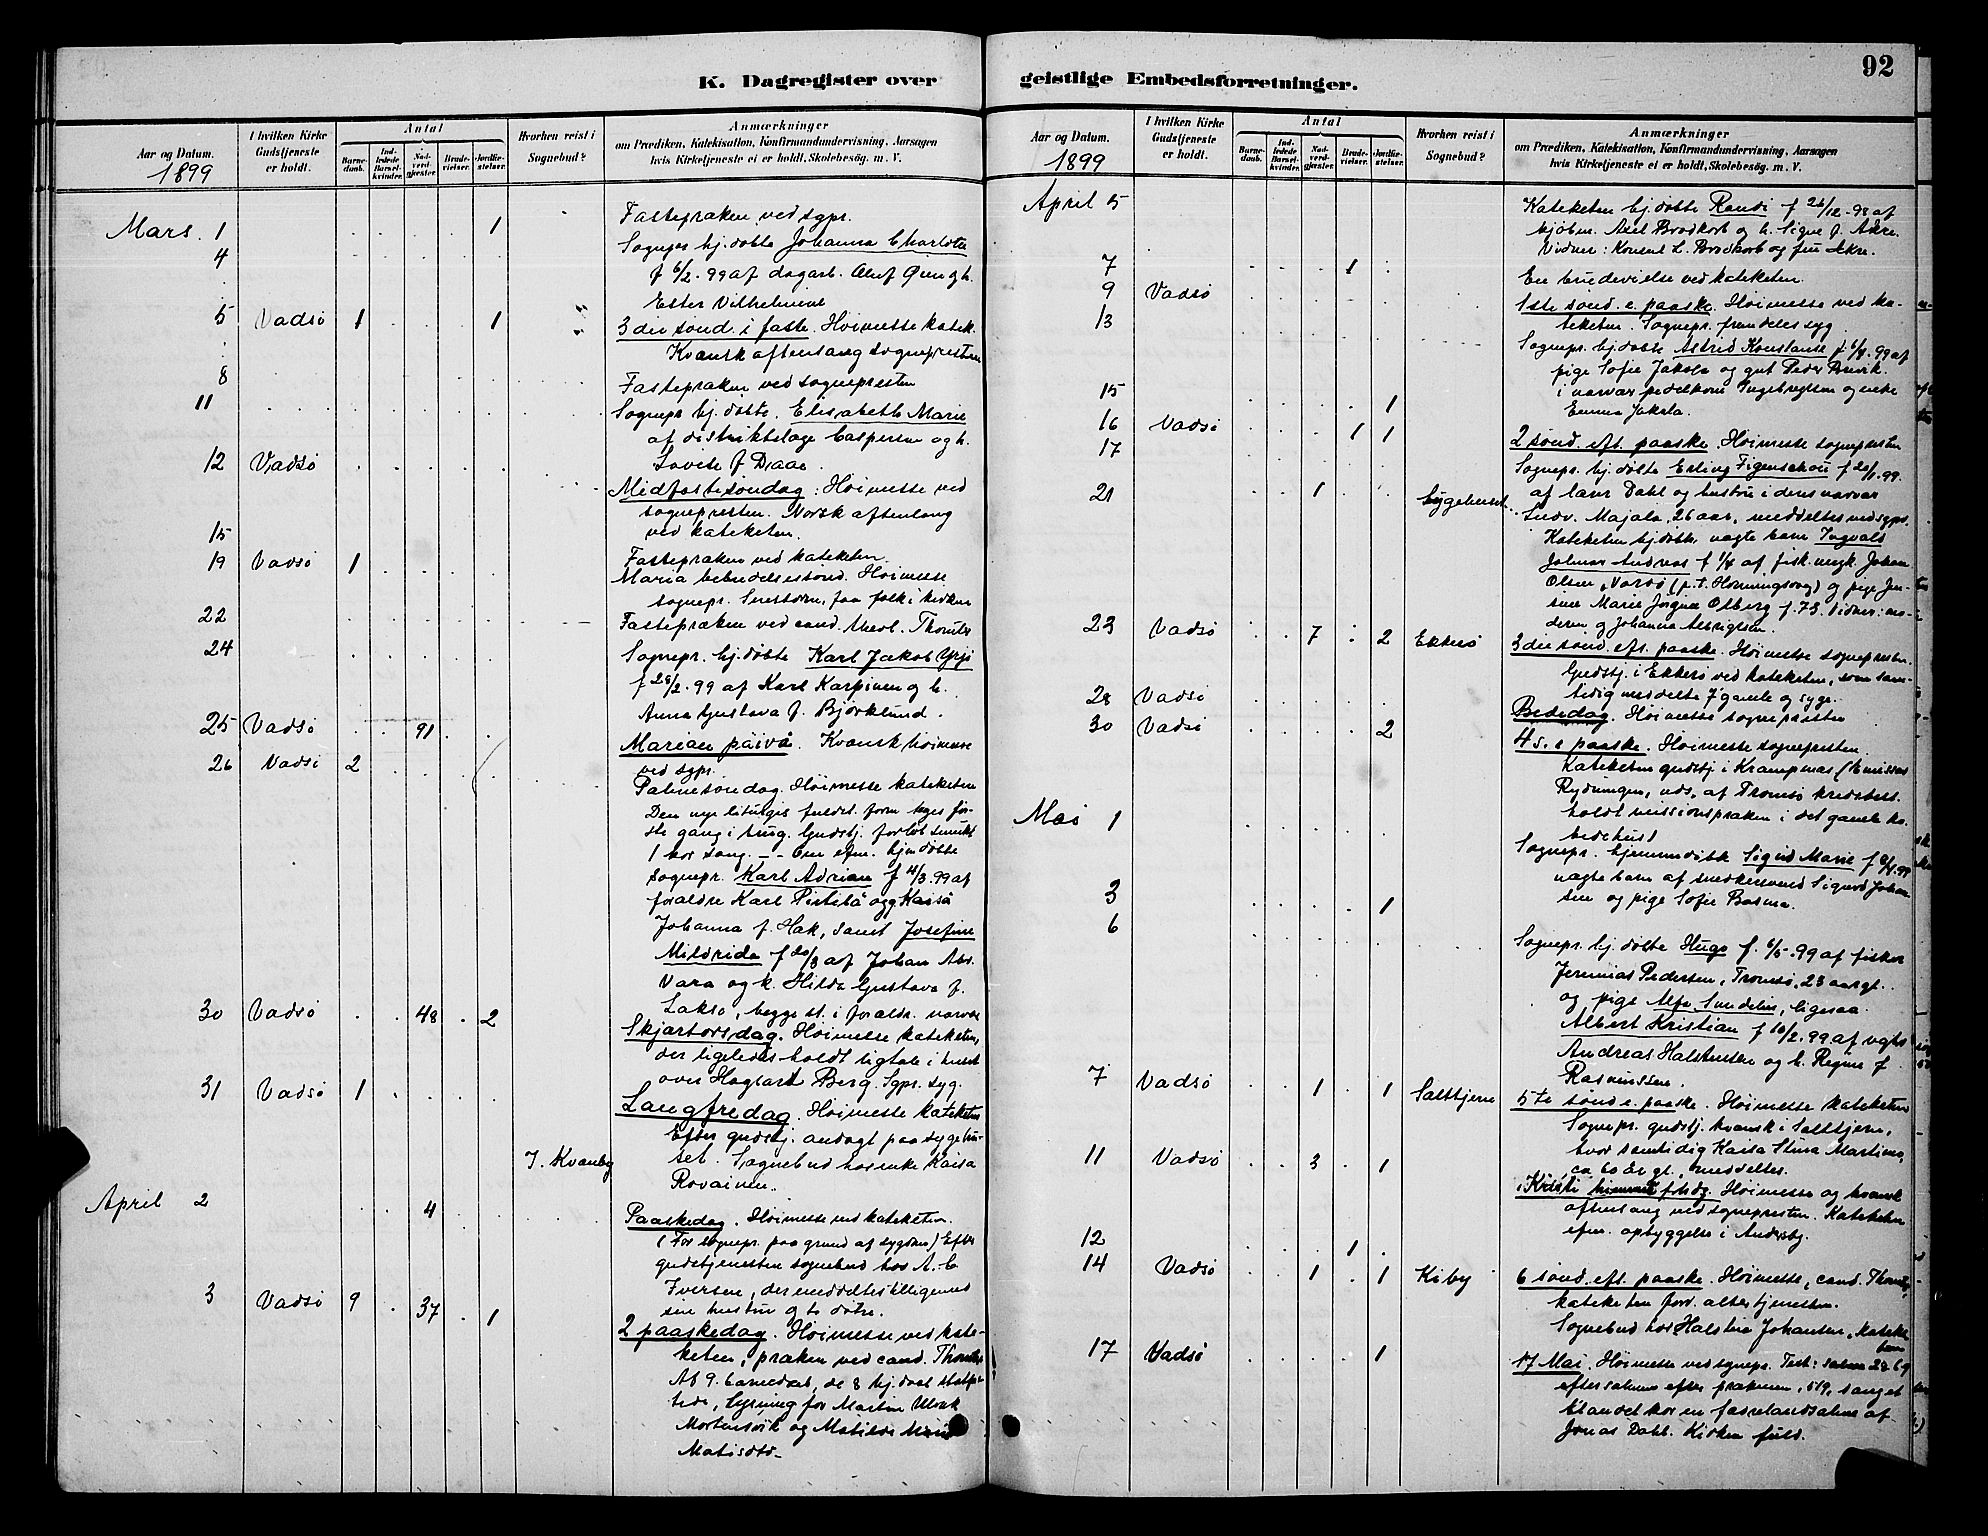 92
K. Dagregister over geistlige Embedsforretninger.
Aar og Datum.
1899
I hvilken Kirke Gudstjeneste er holdt.
Antal
Barnedaab.
Indledede Barselkvinder.
Nadverdgjester.
Brudevielser.
Jordfæstelser.
Hvorhen reist i Sognebud?
Anmærkninger
om Prædiken, Katekisation, Konfirmandundervisning, Aarsagen
hvis Kirketjeneste ei er holdt, Skolebesøg. m. V.
Mars. 1 1 Fastepræken ved sgpr.
4 Sognepr hj.døbte Johanna Charlotte
f 6/2. 99 af dagarb. Oluf
Ester Vilhelmine
5 Vadsø 1 1 3die sønd. i faste. Høimesse katek.
Kvænsk aftensang sognepresten
8 Fastepræken ved sognepresten
11 Sognepr hj. døbte. Elisabeth Marie
af distriktslæge Caspersen og h.
Lovise f Daae.
12 Vadsø Midfastesøndag: Høimesse ved
sognepresten. Norsk aftensang
ved kateketen.
15 Fastepræken ved kateketen.
19 Vadsø 1 Mariæ bebudelsessønd. Høimesse
sognepr. Snestorm, faa folk i kirken
22 Fastepræken ved cand. theol. Thomter
24 Sognepr. hj. døbte Karl Jakob Yrjö
f 28/2. 99 af Karl Karpinen og h.
Anna Gustava f. Björklund.
25 Vadsø 91 Marian päivä. Kvænsk høimesse
ved sgpr.
26 Vadsø 2 Palmesøndag. Høimesse kateketen
Den nye liturgis fuldst. form toges før-
ste gang i brug. Gudstj. forløb smukt
1 kor sang. - - Om efm. hjemdøbte
sognepr. Karl Adrian f 4/3. 99 af
forældre Karl Pistibå og Kaisa
Johanna f. Hak, samt Josefine
Mildrida f 20/3 af Johan Abr.
Vara og h. Hilda Gustava f.
Lakso, begge st. i forældr. nærvær
30 Vadsø 48 2 Skjærtorsdag. Høimesse kateketen,
der ligeledes holdt ligtale i huset
over Hagbart Berg. Sgpr. syg.
31 Vadsø 1 Langfredag. Høimesse kateketen
Efter gudstj. andagt paa sygehu-
J. Kvænby set. Sognebud hos enke Kaisa
Rovainen.
April 2 4 Paaskedag. Høimesse ved kateketen.
(For sognepr. paa grund af sygdom) Efter
gudstjenesten sognebud hos A. C
Iversen, der meddeltes tilligemed
sin hustru og to døtre.
3 Vadsø 9 37 1 2 paaskedag. Høimesse ved kate-
keten, præken ved cand. Thomter
Af 9. barnedaab, de 8 hj. daab stadfæ-
tede, lysning for Martin Ulrik
Mortensvik og Matilde
Matisdtr-
Aar og Datum.
1899
I hvilken Kirke Gudstjeneste er holdt.
Antal
Barnedaab.
Indledede Barselkvinder.
Nadverdgjester.
Brudevielser.
Jordfæstelser.
Hvorhen reist i Sognebud?
Anmærkninger
om Prædiken, Katekisation, Konfirmandundervisning, Aarsagen
hvis Kirketjeneste ei er holdt, Skolebesøg. m. V.
April 5 Kateketen hj. døbte Randi f 26/12 -98 af
kjøbm. Axel Brodkorb og h. Signe f. Akre.
Vidner: Konsul L. Brodkorb og fru Akre.
7 1 En brudevielse ved kateketen.
9 Vadsø 1ste sønd. e. paaske. Høimesse ved ka-
teketen. Sognepr. fremdeles syg.
13 Sognepr. hj. døbte Astrid Konstanse f 6/4. 99 af
pige Sofie Jakola og gut Peder
i nærvær Ingebrigtsen og enke
Emma Jakola.
15 1
16 Vadsø 1 1 2 sønd. eft. paaske. Høimesse sognepresten
17 Sognepr. hj. døbte Erling Figenschou f 20/1. 99.
af lærer Dahl og hustru i deres nærvær
21 1 Sygehuset Ludv. Majala, 26 aar, meddeltes ved sgpr.
Kateketen hj. døbte uægte barn Ingvald
Johan Andreas f 1/4 af fisk. ungk. Johan
Olsen, Vardø (p.t. Honningsvaag) og pige Jen-
sine Marie Jørgine Olberg f. 73. Vidner: mo-
deren og Johanna Albrigtsen.
23 Vadsø 7 2 Ekkerø 3die sønd. eft. paaske. Høimesse sognepresten.
Gudstj. i Ekkerø ved kateketen, som sam-
tidig meddelte 7 gamle og syge.
28 Vadsø Bededag. Høimesse sognepresten
30 Vadsø 2 4 s. e paaske. Høimesse sognepresten.
Kateketen gudstj. i Krampenæs (Emissær
Rydningen, uds. af Tromsø kredsbest.
holdt missionspræken i det gamle
bedehus)
Mai 1 Sognepr. hjemmedøbte Sigrid Marie f 8/4 99
uægte barn af snedkersvend Sigurd Johan-
sen og pige Sofie Basma.
3 1
6 Sognepr. hj. døbte Hugo f. 6/5. 99 af fisker
Jeremias Pedersen, Tromsø, 23 aar gl.
og pige Alfa Sundelin, ligesaa
Albert Kristian f 10/2. 99 af vgts
Andreas Halstensen og h. Regine f
Rasmussen.
7 Vadsø 1 1 Saltbjerne 5te sønd e. paaske. Høimesse kateketen
Sognepr. gudstj. kvænsk i Saltbjern,
hvor samtidig Kaisa Stina Martimo,
ca 60 år gl., meddeltes.
11 Vadsø 3 1 Kristi himmelf.dag. Høimesse og kvænsk
aftensang ved sognepresten. Kateketen
efm. opbyggelse i Andersby.
12 1
14 Vadsø 1 1 Kiby 6 sønd. eft. paaske. Høimesse, cand. Thomter,
kateketen forr. altertjenesten.
Sognebud hos Halstein Johansen, kateke
ten
17 Vadsø 1 17 Mai. Høimesse ved sognepr. Text: salme
efter salmen efter prækenen, 519, sang et
blandet kor en fædrelandssalme af
Jonas Dahl. Kirken fuld.